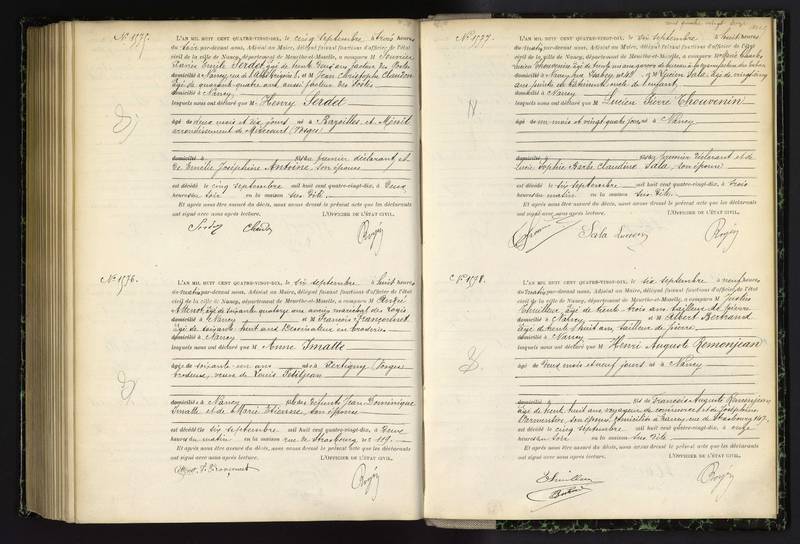 N° 1575.
L'AN MIL HUIT CENT QUATRE-VINGT-DIX, le cinq septembre à trois heures
du soir par-devant nous, Adjoint au Maire, délégué faisant fonctions d'officier de l'état
civil de la ville de Nancy, département de Meurthe-et-Moselle, a comparu M
Marie Emile Serdet âgé de trente deux ans, facteur des Postes
domicilié à Nancy, rue et M Jean Christophe Claudon
âgé de quarante quatre ans, aussi facteur des Postes
domicilié à Nancy
lesquels nous ont déclaré que M Henry Serdet
âgé de deux mois et dix jours né à Bazoilles et Ménil
arrondissement de Mirecourt (Vosges)
domicilié à fils du premier déclarant et
de Emélie Joséphine Antoine, son épouse
est décédé le cinq septembre mil huit cent quatre-vingt-dix, à deux
heures du soir en la maison sus dite
Et après nous être assuré du décès, nous avons dressé le présent acte que les déclarants
ont signé avec nous après lecture. L'OFFICIER DE L'ÉTAT CIVIL,
N° 1576.
L'AN MIL HUIT CENT QUATRE-VINGT-DIX, le six septembre à huit heures
du matin par-devant nous, Adjoint au Maire, délégué faisant fonctions d'officier de l'état
civil de la ville de Nancy, département de Meurthe-et-Moselle, a comparu M
âgé de soixante quatorze ans ancien maréchal des logis
domicilié à Nancy et M François Françoinnet
âgé de soixante huit ans Dessinateur en broderies
domicilié à Nancy
lesquels nous ont déclaré que M Anne Thatte
âgée de soixante-un ans née à Xertigny (Vosges)
brodeuse, veuve de Louis Petitjean
domiciliée à Nancy fille des défunts Jean Dominique
et de Marie Etienne, son épouse
est décédée le six septembre mil huit cent quatre-vingt-dix, à deux
heures du matin en la maison rue de Strasbourg n° 119.
Et après nous être assuré du décès, nous avons dressé le présent acte que les déclarants
ont signé avec nous après lecture. L'OFFICIER DE L'ÉTAT CIVIL,
N° 1577.
L'AN MIL HUIT CENT QUATRE-VINGT-DIX, le six septembre à huit heures
du matin par-devant nous, Adjoint au Maire, délégué faisant fonctions d'officier de l'état
civil de la ville de Nancy, département de Meurthe-et-Moselle, a comparu M
Thouvenin âgé de trente
domicilié à Nancy rue et M Lucien Sala, âgé de vingt cinq
ans peintre en bâtiments oncle de l'enfant
domicilié à Nancy
lesquels nous ont déclaré que M Lucien Pierre Thouvenin
âgé de un mois et vingt quatre jours né à Nancy
domicilié à fils du premier déclarant et de
Sophie Barbe Claudine Sala, son épouse
est décédé le six septembre mil huit cent quatre-vingt-dix, à trois
heures du matin en la maison sus dite
Et après nous être assuré du décès, nous avons dressé le présent acte que les déclarants
ont signé avec nous après lecture. L'OFFICIER DE L'ÉTAT CIVIL,
Sala Lucien
N° 1578.
L'AN MIL HUIT CENT QUATRE-VINGT-DIX, le six septembre à neuf heures
du matin par-devant nous, Adjoint au Maire, délégué faisant fonctions d'officier de l'état
civil de la ville de Nancy, département de Meurthe-et-Moselle, a comparu M Justin
Thuillier, âgé de trente trois ans, tailleur de pierre
domicilié à Nancy et M Albert Bertrand
âgé de trente huit ans, tailleur de pierre
domicilié à Nancy
lesquels nous ont déclaré que M Henri Auguste Remonjean
âgé de deux mois et neuf jours né à Nancy
domicilié à fils de François Auguste Remonjean
âgé de trente huit ans voyageur de commerce et de Joséphine
son épouse, domiciliés à Nancy, rue de Strasbourg 147,
est décédé le cinq septembre mil huit cent quatre-vingt-dix, à onze
heures du soir en la maison sus dite
Et après nous être assuré du décès, nous avons dressé le présent acte que les déclarants
ont signé avec nous après lecture. L'OFFICIER DE L'ÉTAT CIVIL,